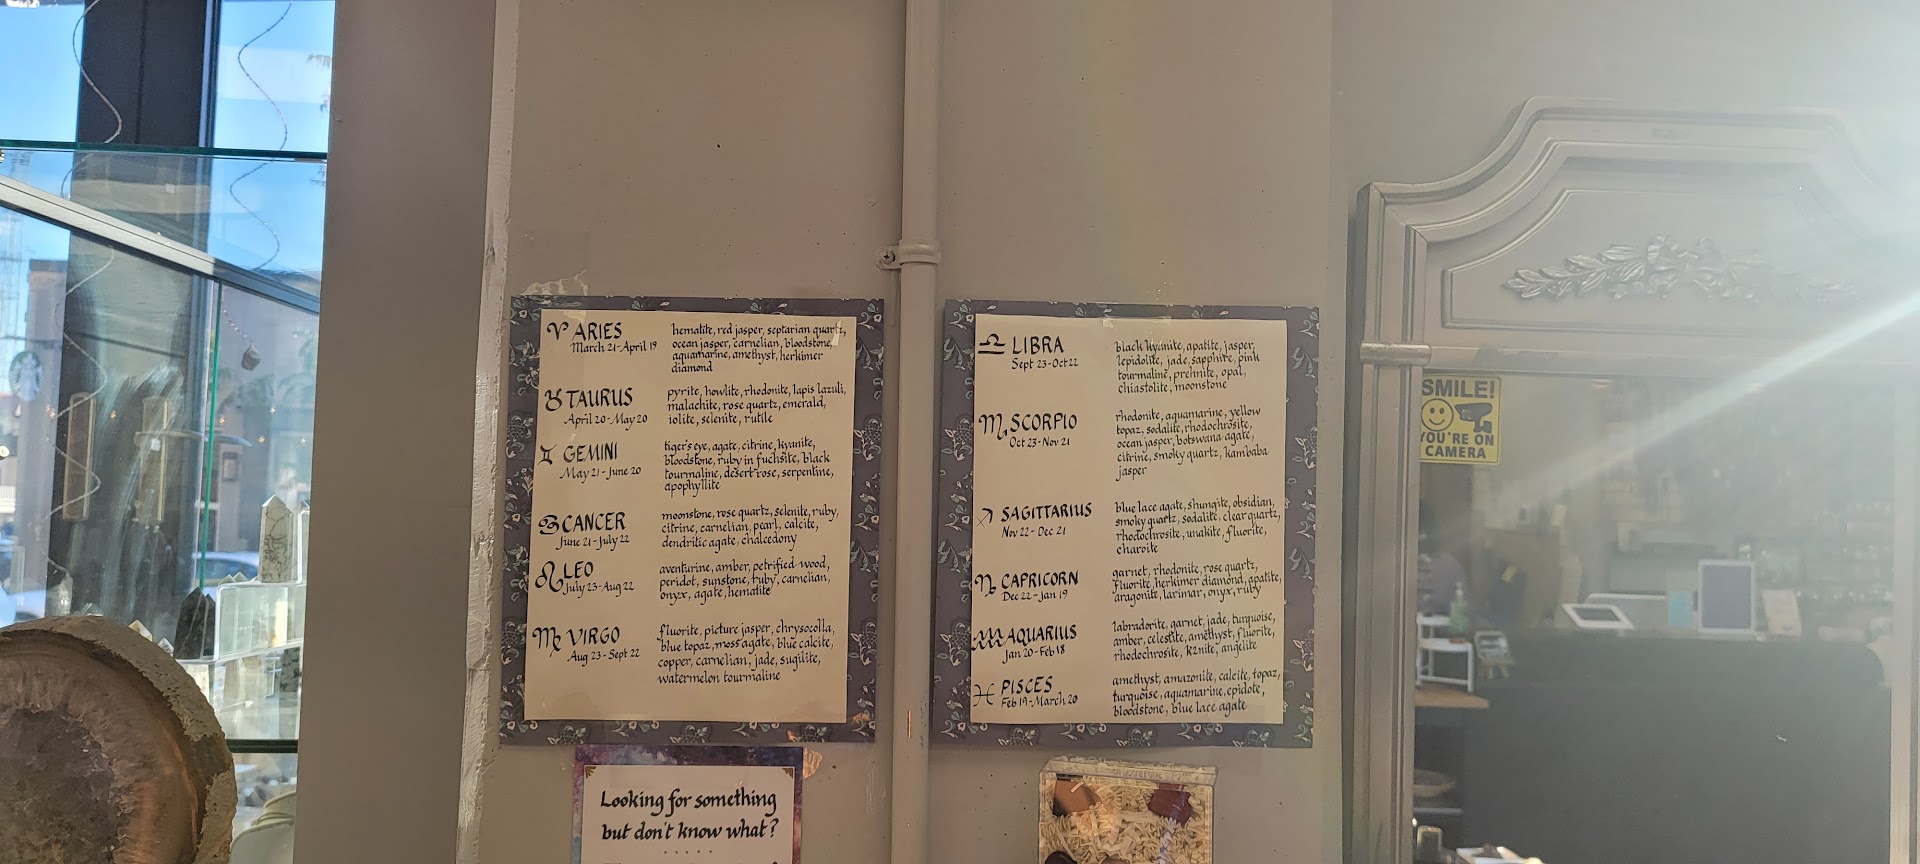 ARIES
March 21-April 19
hematite, red jasper, septarian quartz,
ocean jasper, carnelian, bloodstone,
aquamarine, amethyst, herkimer
diamond
TAURUS
April 20-May 20
pyrite, howlite, rhodonite, lapis lazuli,
malachite, rose quartz, emerald,
iolite, selenite, rutile
GEMINI
May 21-June 20
tiger's eye, agate, citrine, kyanite,
bloodstone, ruby in fuchsite, black
tourmaline, desert rose, serpentine,
apophyllite
CANCER
June 21-July 22
moonstone, rose quartz, selenite, ruby,
citrine, carnelian, pearl, calcite,
dendritic agate, chalcedony
LEO
July 23-Aug 22
aventurine, amber, petrified wood,
peridot, sunstone, ruby, carnelian,
onyx, agate, hematite
VIRGO
Aug 23-Sept 22
fluorite, picture jasper, chrysocolla,
blue topaz, moss agate, blue calcite,
copper, carnelian, jade, sugilite,
watermelon tourmaline
LIBRA
Sept 23-Oct 22
black kyanite, apatite, jasper,
lepidolite, jade, sapphire, pink
tourmaline, prehnite, opal,
chiastolite, moonstone
SCORPIO
Oct 23-Nov 21
rhodonite, aquamarine, yellow
topaz, sodalite, rhodochrosite,
ocean jasper, botswana agate,
citrine, smoky quartz, kambaba
jasper
SAGITTARIUS
Nov 22-Dec 21
blue lace agate, shungite, obsidian,
smoky quartz, sodalite, clear quartz,
rhodochrosite, unakite, fluorite,
charoite
CAPRICORN
Dec 22-Jan 19
garnet, rhodonite, rose quartz,
fluorite, herkimer diamond, apatite,
aragonite, larimar, onyx, ruby
AQUARIUS
Jan 20-Feb 18
labradorite, garnet, jade, turquoise,
amber, celestite, amethyst, fluorite,
rhodochrosite, k2nite, angelite
PISCES
Feb 19-March 20
amethyst, amazonite, calcite, topaz,
turquoise, aquamarine, epidote,
bloodstone, blue lace agate
Looking for something
but don't know what?
SMILE!
YOU'RE ON
CAMERA